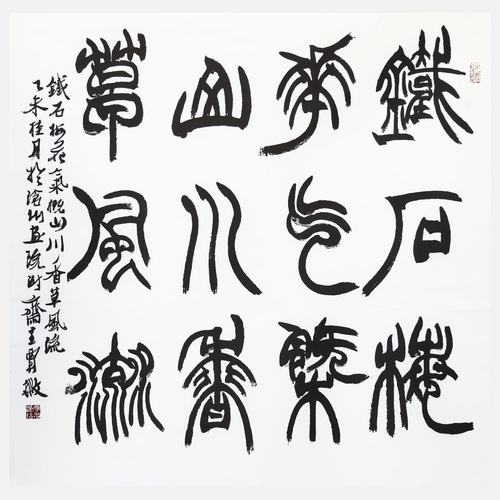 鐵石梅
華气概
山川香
草風流
鐵石梅花氣概山川香草風流
乙未桂月於滄州画院時齋王